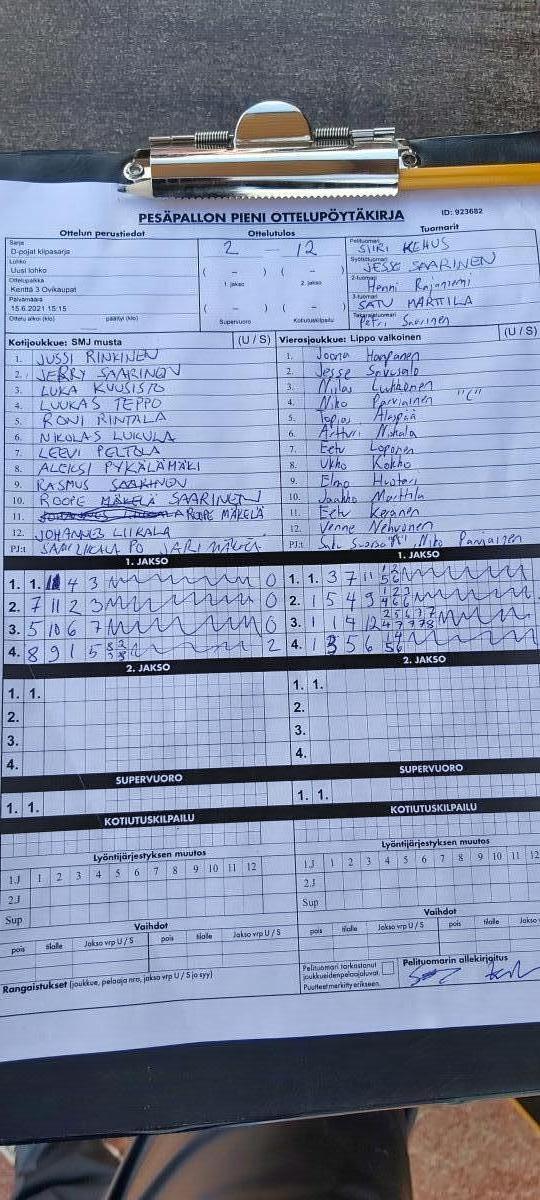 PESÄPALLON PIENI OTTELUPÖYTÄKIRJA ID: 923682
Ottelun perustiedot Ottelutulos Tuomarit
Sarja
D-pojat kilpasarja
Lohko
Uusi lohko
Ottelupaikka
Kenttä 3 Ovikaupat
Päivämäärä
15.6.2021 15:15
Ottelu alkoi (klo) päättyi (klo)
2 — 12
( – ) ( – )
1. jakso 2. jakso
( – ) ( – )
Supervuoro Kotiutuskilpailu
Pelituomari
SIIRI KEHUS
Syöttötuomari
JESSE SAARINEN
2-tuomari
Henni Rajaniemi
3-tuomari
SATU MARTTILA
Takarajatuomari
Petri Saarinen
Kotijoukkue: SMJ musta (U / S)
1. JUSSI RINKINEN
2. JERRY SAARINEN
3. LUKA KUUSISTO
4. LUUKAS TEPPO
5. RONI RINTALA
6. NIKOLAS LUKULA
7. LEEVI PELTOLA
8. ALEKSI PYKÄLÄMÄKI
9. RASMUS SAARINEN
10. ROOPE SAARINEN
11. ROOPE MÄKELÄ
12. JOHANNES LIIKALA
PJ:t SAMI LIIKALA PO JARI MÄKELÄ
Vierasjoukkue: Lippo valkoinen (U / S)
1. Joona
2. Jesse
3. Niilas Luhkonen
4. Niko Parviainen "C"
5. Topias
6. Artturi
7. Eetu Loponen
8. Ukko Kokko
9. Elmo Huotari
10. Jaakko Marttila
11. Eetu Keränen
12. Verne Nehvonen
PJ:t Satu Niko Parviainen
1. JAKSO 1. JAKSO
1. 1. 4 3 0
2. 7 11 2 3 0
3. 5 10 6 7 0
4. 8 9 1 5 2
1. 1. 3 7 11
2. 1 5 4 9
3. 1 1 4 12
4. 1 3 5 6
2. JAKSO 2. JAKSO
1. 1. 1. 1.
2. 2.
3. 3.
4. 4.
SUPERVUORO SUPERVUORO
1. 1. 1. 1.
KOTIUTUSKILPAILU KOTIUTUSKILPAILU
Lyöntijärjestyksen muutos Lyöntijärjestyksen muutos
1.J 1 2 3 4 5 6 7 8 9 10 11 12 1.J 1 2 3 4 5 6 7 8 9 10 11 12
2.J 2.J
Sup Sup
Vaihdot Vaihdot
pois tilalle Jakso vrp U / S pois tilalle Jakso vrp U / S pois tilalle Jakso vrp U / S pois tilalle Jakso vrp U / S
Rangaistukset (joukkue, pelaaja nro, jakso vrp U / S ja syy)
Pelituomari tarkastanut
joukkueiden pelaajaluvat.
Puutteet merkitty erikseen.
Pelituomarin allekirjoitus